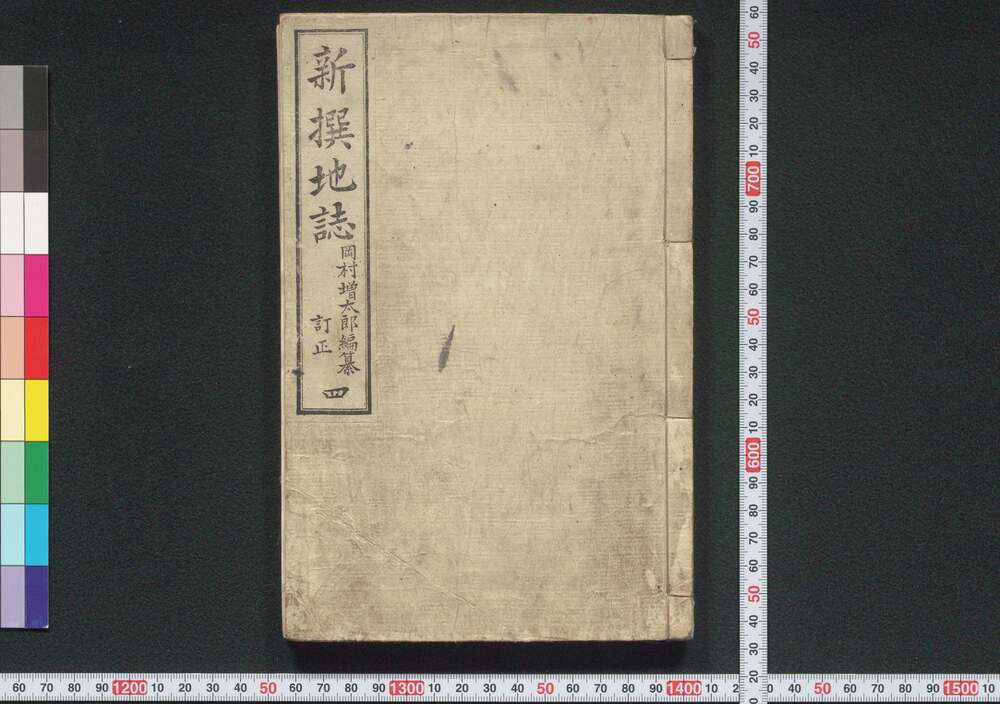 新撰地誌
岡村増太郎編纂
訂正
四
60
50
40
30
20
10
700
90
80
70
60
50
40
30
20
10
600
90
80
70
60
50
40
30
20
60 70 80 90 1200 10 20 30 40 50 60 70 80 90 1300 10 20 30 40 50 60 70 80 90 1400 10 2
30 40 50 60 70 80 90 1500 10